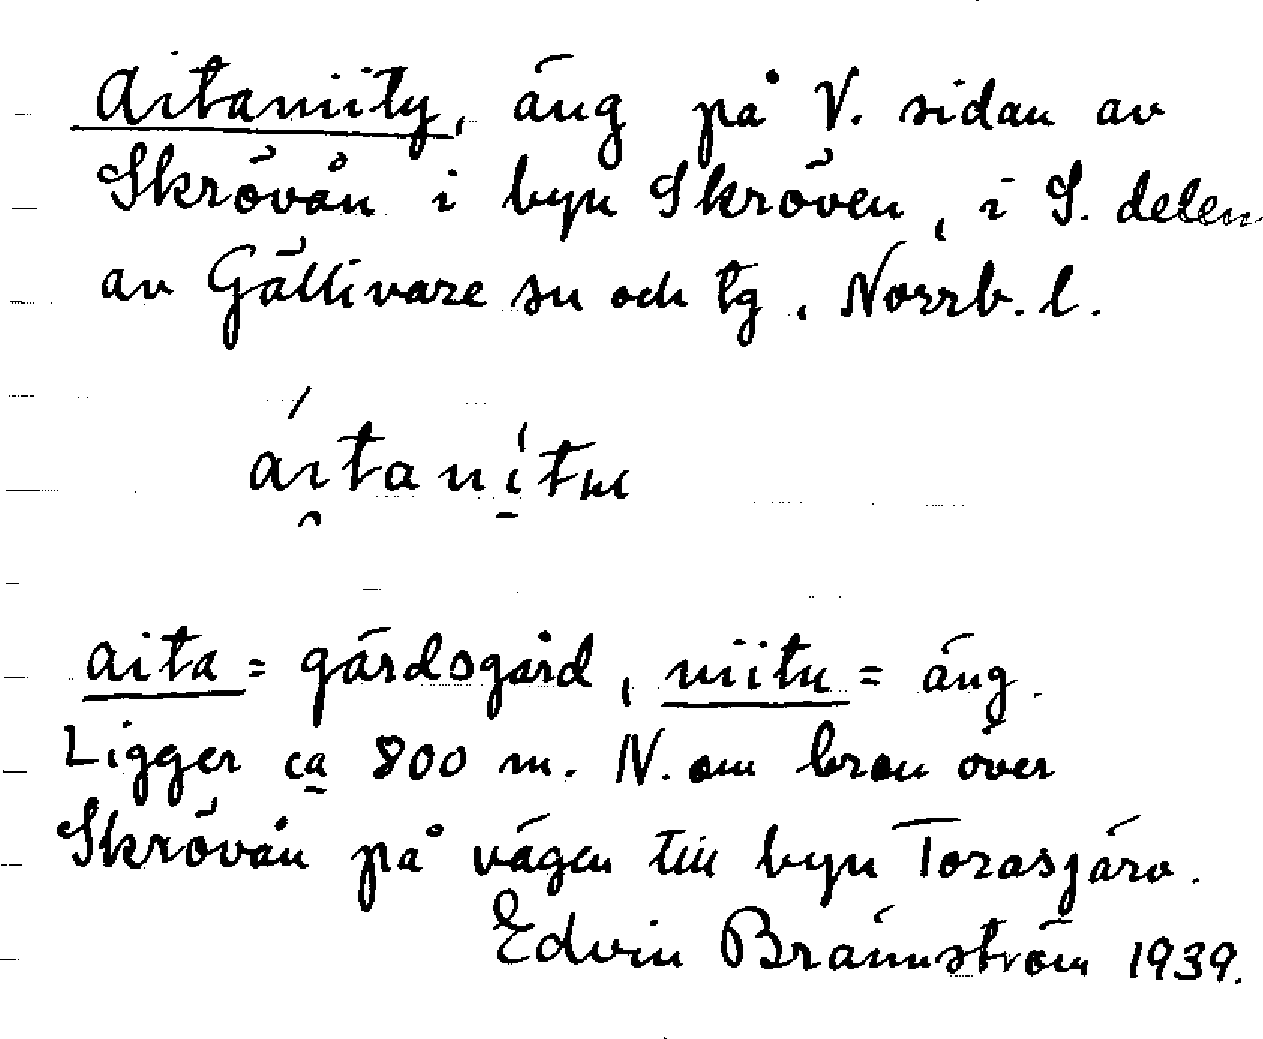 Aitaniity, äng på V. sidan av
Skrövån i byn Skröven, i S. delen
av Gällivare sn och tg, Norrb. l.
aita = gärdsgård, niitu = äng.
Ligger ca 800 m. N. om bron över
Skrövån på vägen till byn Torasjärv.
Edvin Brännström 1939.